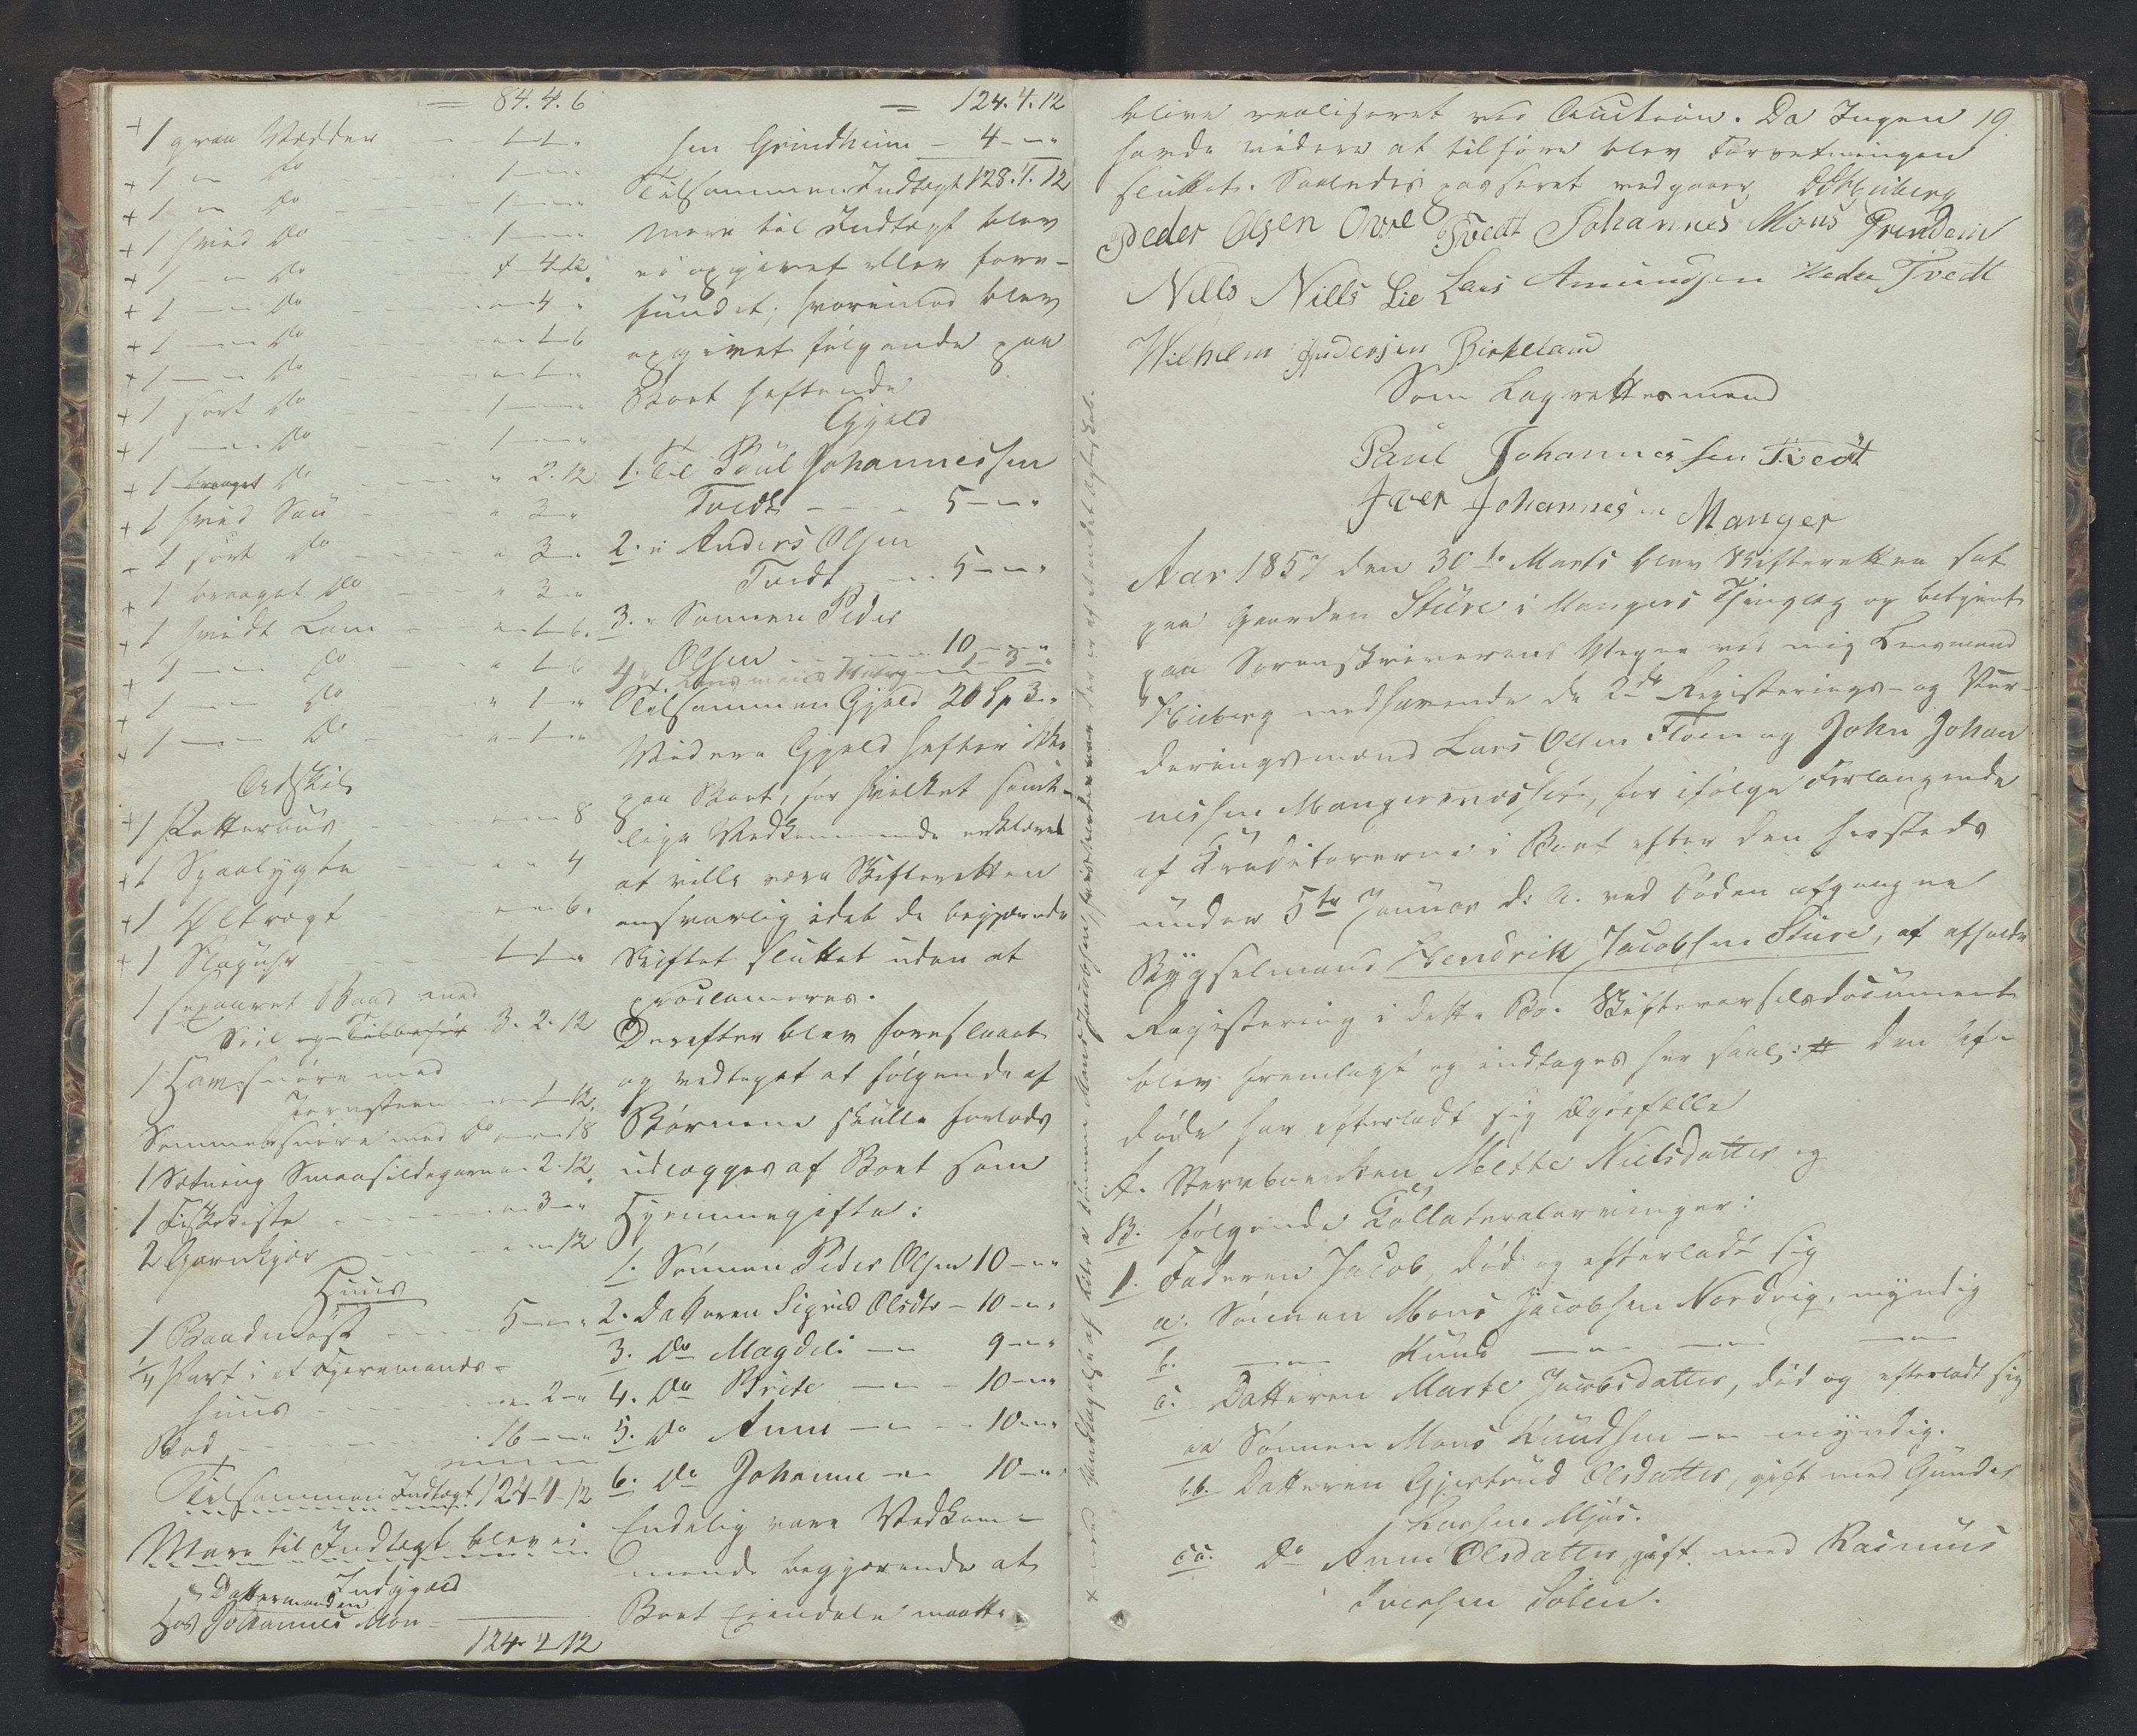 = 84.4.6
+ 1 graa Vædder - 1-1-"
+ 1 " do - 1-"-"
+ 1 " do - 1-"-"
+ 1 hvid do - 1-"-"
+ 1 - " do - 4-12
+ 1 - " do - "-4-"
+ 1 - " do - "-1-6
1 - " do - "-1-"
+ 1 sort do - 1-"-"
+ 1 - " do - 1-"-"
+ 1 braaget do - " 2.12
+ 1 hvid Sau - " 3-"
1 sort do - " 3-"
+ 1 braaget do - " 3-"
+ 1 hvidt Lam - "-1-6.
+ 1 - " do - " 1-6
+ 1 - " do - " 1-"
+ 1 - " do - "-1-"
Adskil
+ 1 Potterøus - "-"-8
+ 1 Spaalygte - "-"-4
+ 1 Øltragt - "-"-6.
+ 1 Slaguhr - 1-1-"
1 sexaaret Baad med
Seil og Tilbehør 3.2.12
1 Havsnøre med
Jernsteen "-1-12
Sommersnøre med do "-"-18
1 Sætning Smaasildegarn " 2.12
1 Fiskekiste - "-3-"
2 Garnkjør - "-"-12
Huus
1 Baadnøst - 5-"-"
1/4 Part i et Fjeremands-
huus - "-2-"
Bod - 16-"-"
Tilsammen Indtægt 124-4-12
Mere til Indtægt blev ei
Indgjæld
Hos Dattermanden
Johannes Mon-
124-4-12
= 124.4.12
sen Grindheim - 4-"-"
Tilsammen Indtægt 128.4.12
Mere til Indtægt blev
ei opgivet eller fore-
fundet; hvorimod blev
opgivet følgende paa
Boet heftende
Gjæld
1. Til Paul Johannessen
Tvedt - 5-"-"
2. " Anders Olsen
Tvedt - 5-"-"
3. " Sønnen Peder
Olsen - 10-"-"
4. " Lensmand - 1-3-"
Tilsammen Gjæld 20 Sp 3-"
Videre Gjæld hefter ikke
paa Boet, for hvilket samt-
lige Vedkommende erklærede
at ville være Skifteretten
ansvarlig idet de begjærede
Skiftet sluttet uden at
proclameres.
Derefter blev foreslaaet
og vedtaget at følgende af
Børnene skulle forlods
udlægges af Boet som
Hjemmegifte:
1. Sønnen Peder Olsen 10-"-"
2. Datteren Sigrid Olsdtr - 10-"-"
3. do Magdeli - " 9-"-"
4. do Brite - " 10-"-"
5. do Anne - " 10-"-"
6. do Johanne - " 10-"-"
Endelig vare Vedkom-
mende begjærende at
Boets Eiendele maatte
blive realiseret ved Auction. Da Ingen 19.
havde videre at tilføre blev Forretningen
sluttet. Saaledes passeret vedgaaes Heiberg
Peder Olsen Övre Tvedt Johannes Mons Grindeim
Nills Nills Lie Lars Amundsen Nedre Tvedt
Wilhelm Andersen Birkeland
Som Lagrettesmend
Paul Johannessen Tvedt
Iver Johannesen Manger
Aar 1857 den 30te Marts blev Skifteretten sat
paa Gaarden Sture i Mangers Thinglag og betjent
paa Sorenskriverens Vegne ved mig Lensmand
Heiberg medhavende de 2de Registerings- og Vur-
deringsmænd Lars Olsen Floen og John Johan
nessen Mangersnæsset, for ifølge Forlangende
af Creditorerne i Boet efter den hersteds
under 5te Januar d: A. ved Døden afgangne
Bygselmand Hendrik Jacobsen Sture, at afholde
Registering i dette Bo. Skifteværfalsdocument
blev fremlagt og indtages her saal: # Den Af-
døde har efterladt sig Ægtefælle
A. Stervboenken Mette Nielsdatter og
B. følgende Collateralarvinger:
1. Faderen Jacob, død og efterladt sig
a. Sønnen Mons Jacobsen Nordvig, myndig
b. - " Knud - " - " -
c. Datteren Marte Jacobsdatter, død og efterladt sig
aa Sønnen Mons Knudsen - " myndig.
bb. Datteren Gjertrud Olsdatter, gift med Gunder
Larsen Mjøs.
cc. do Anne Olsdatter, gift med Rasmus
Iversen Solem.